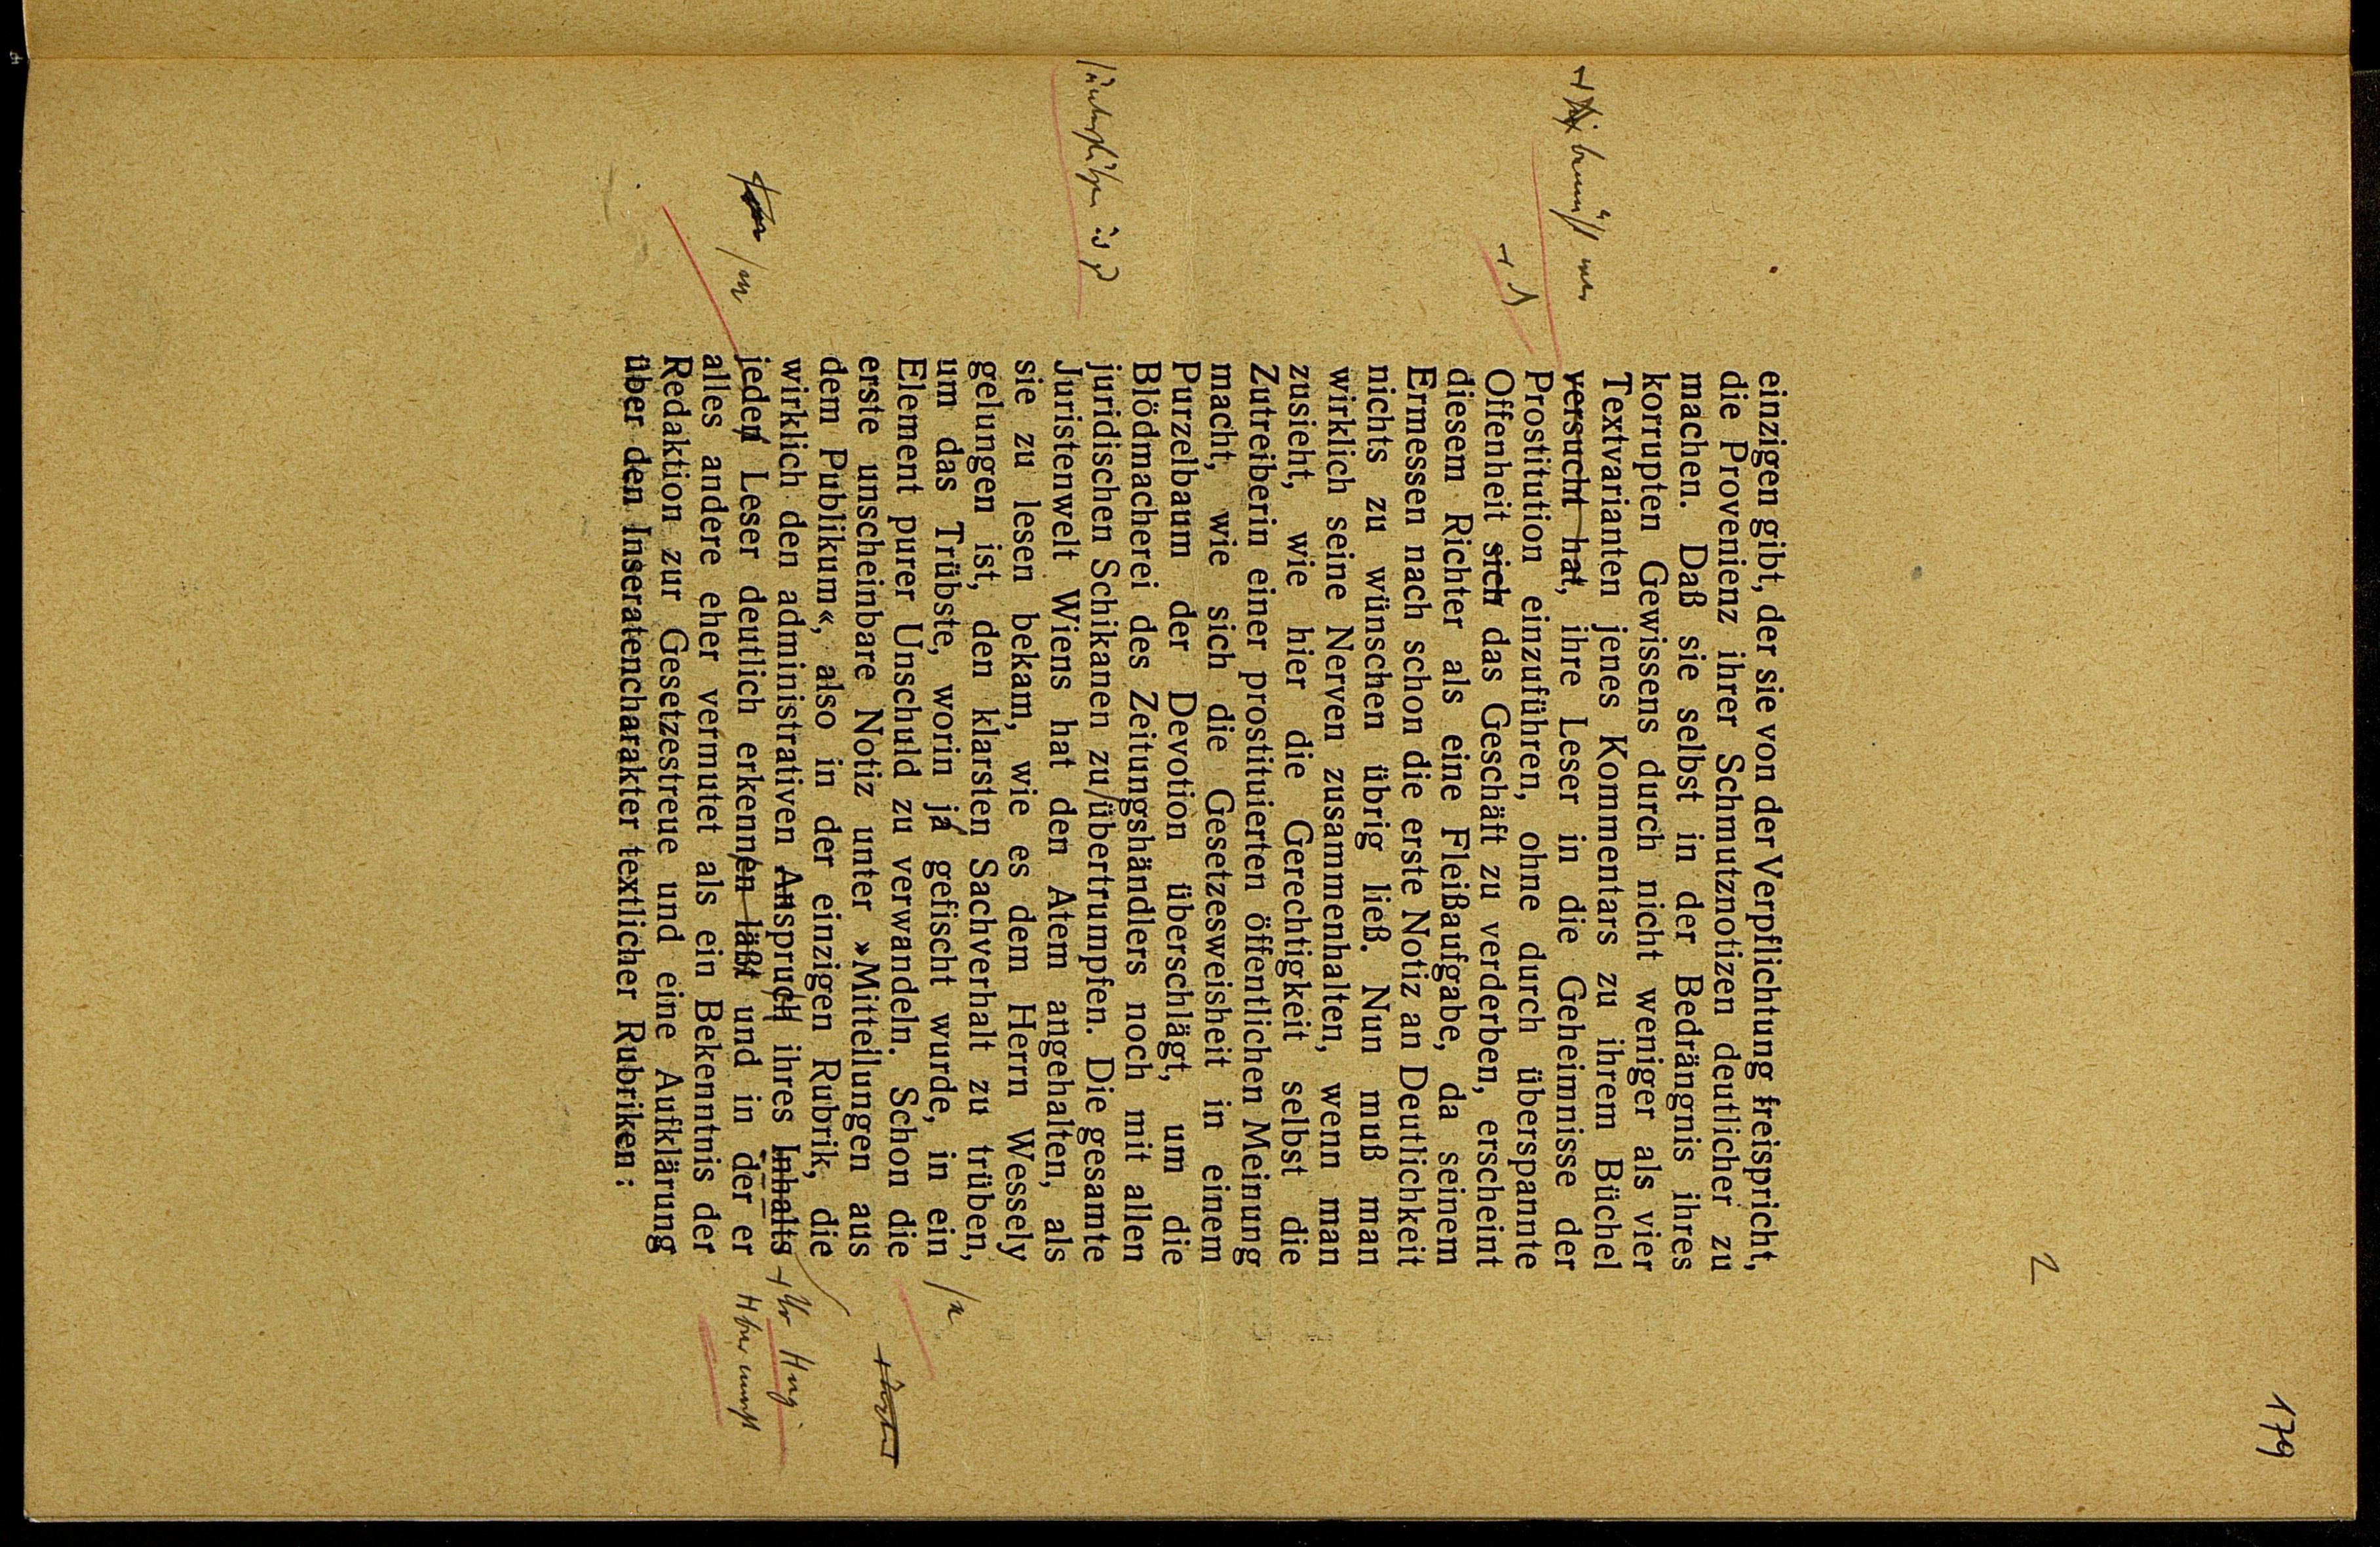 179
2
einzigen gibt, der sie von der Verpflichtung freispricht,
die Provenienz ihrer Schmutznotizen deutlicher zu
machen. Daß sie selbst in der Bedrängnis ihres
korrupten Gewissens durch nicht weniger als vier
Textvarianten jenes Kommentars zu ihrem Büchel
versucht hat, ihre Leser in die Geheimnisse der
Prostitution einzuführen, ohne durch überspannte
Offenheit sich das Geschäft zu verderben, erscheint
diesem Richter als eine Fleißaufgabe, da seinem
Ermessen nach schon die erste Notiz an Deutlichkeit
nichts zu wünschen übrig ließ. Nun muß man
wirklich seine Nerven zusammenhalten, wenn man
zusieht, wie hier die Gerechtigkeit selbst die
Zutreiberin einer prostituierten öffentlichen Meinung
macht, wie sich die Gesetzesweisheit in einem
Purzelbaum der Devotion überschlägt, um die
Blödmacherei des Zeitungshändlers noch mit allen
juridischen Schikanen zu/übertrumpfen. Die gesamte
Juristenwelt Wiens hat den Atem angehalten, als
sie zu lesen bekam, wie es dem Herrn Wessely
gelungen ist, den klarsten Sachverhalt zu trüben,
um das Trübste, worin ja gefischt wurde, in ein
Element purer Unschuld zu verwandeln. Schon die
erste unscheinbare Notiz unter »Mitteilungen aus
dem Publikum«, also in der einzigen Rubrik, die
wirklich den administrativen Anspruch ihres Inhalts
jeden Leser deutlich erkennen läßt und in der er
alles andere eher vermutet als ein Bekenntnis der
Redaktion zur Gesetzestreue und eine Aufklärung
über den Inseratencharakter textlicher Rubriken: